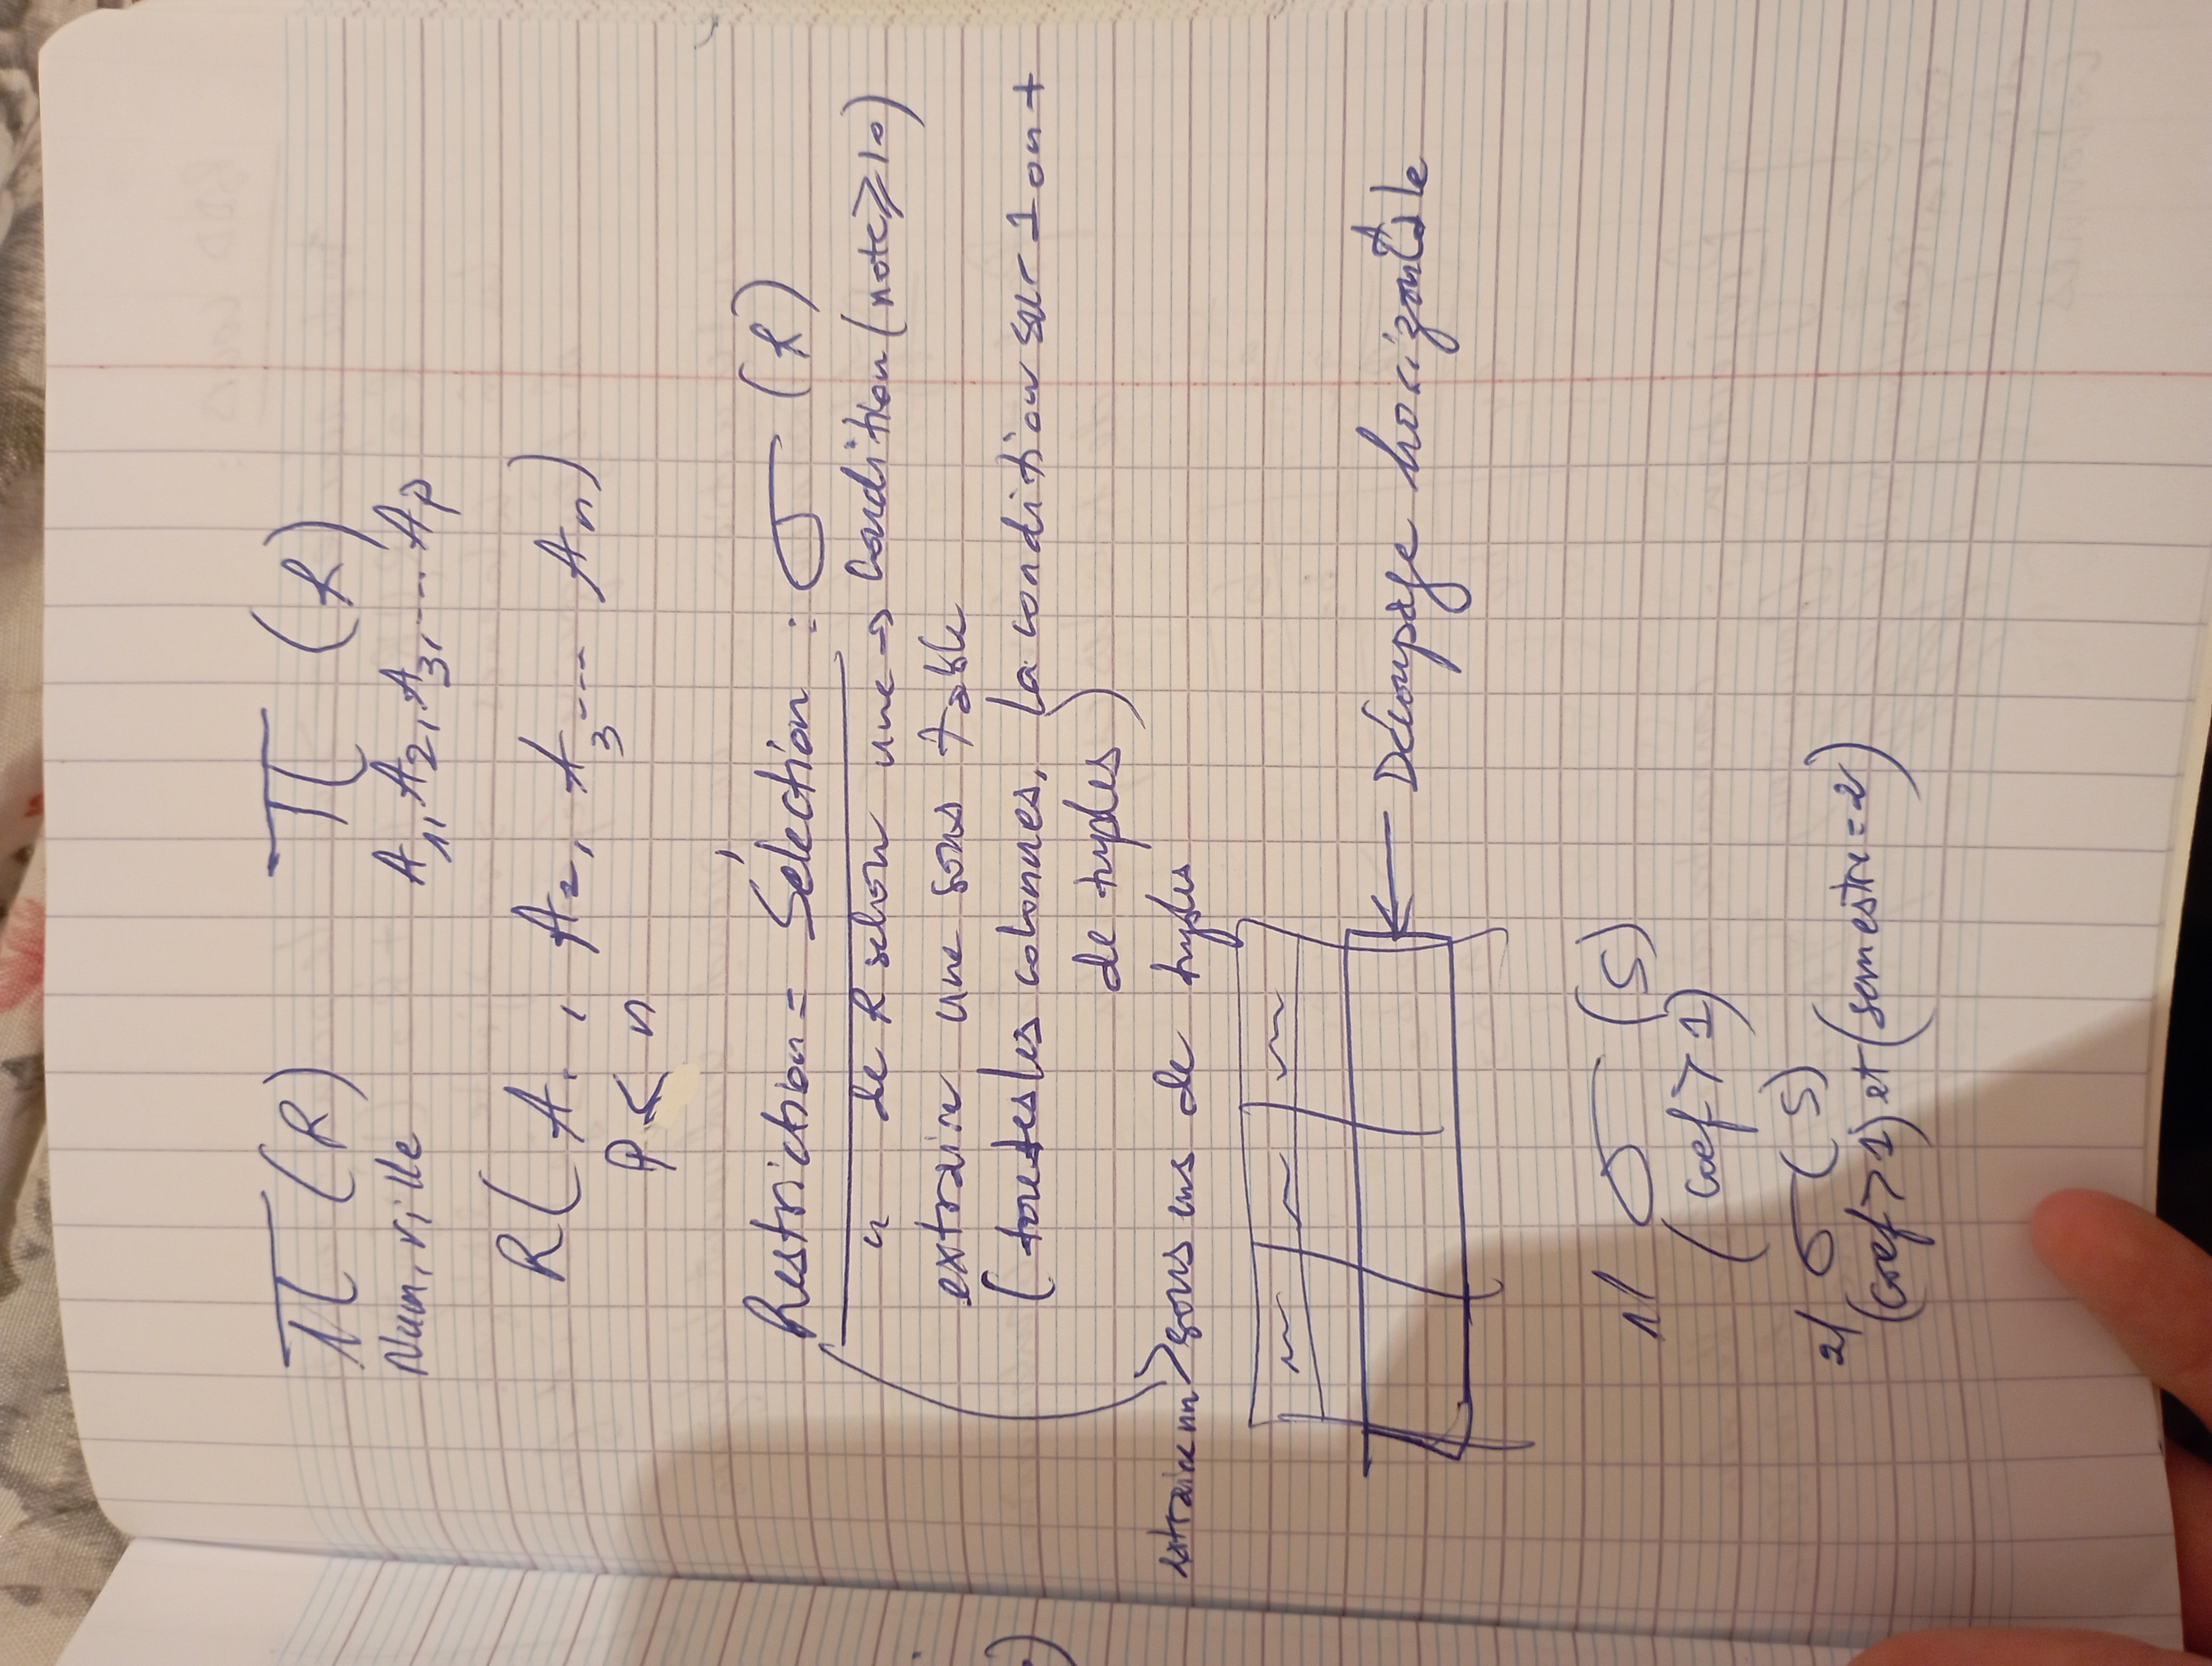 π (R) π (R)
Num, ville A1, A2, A3, ... Ap
R(A1, A2, A3 --- An)
p < n
Restriction = Sélection : σ (R)
" de R selon une → Condition (note ≥ 10)
extraire une sous table
(toutes les colonnes, la condition sur 1 ou +
de tuples)
extraire un > sous ens de tuples
← Découpage horizontale
1/ σ (S)
(coef > 1)
2/ σ (S)
(coef > 1) et (semestre = 2)